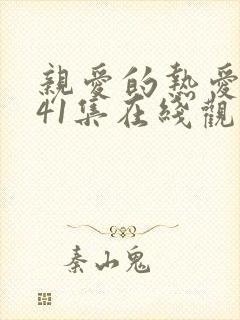 親愛的熱愛
41集在綫觀
秦山鬼